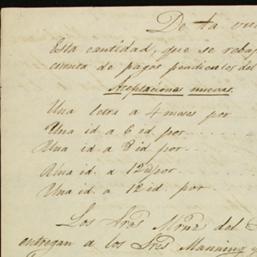 De la
Esta cantidad, que se
cuenta de pagos pendientes del
Aceptaciones nuevas.
Una letra a 4 meses por
Una id. a 6 id. por
Una id. a 8 id. por
Una id. a 12 id. por
Una id. a 12 id. por
Los Sres. del
entregan a los Sres.